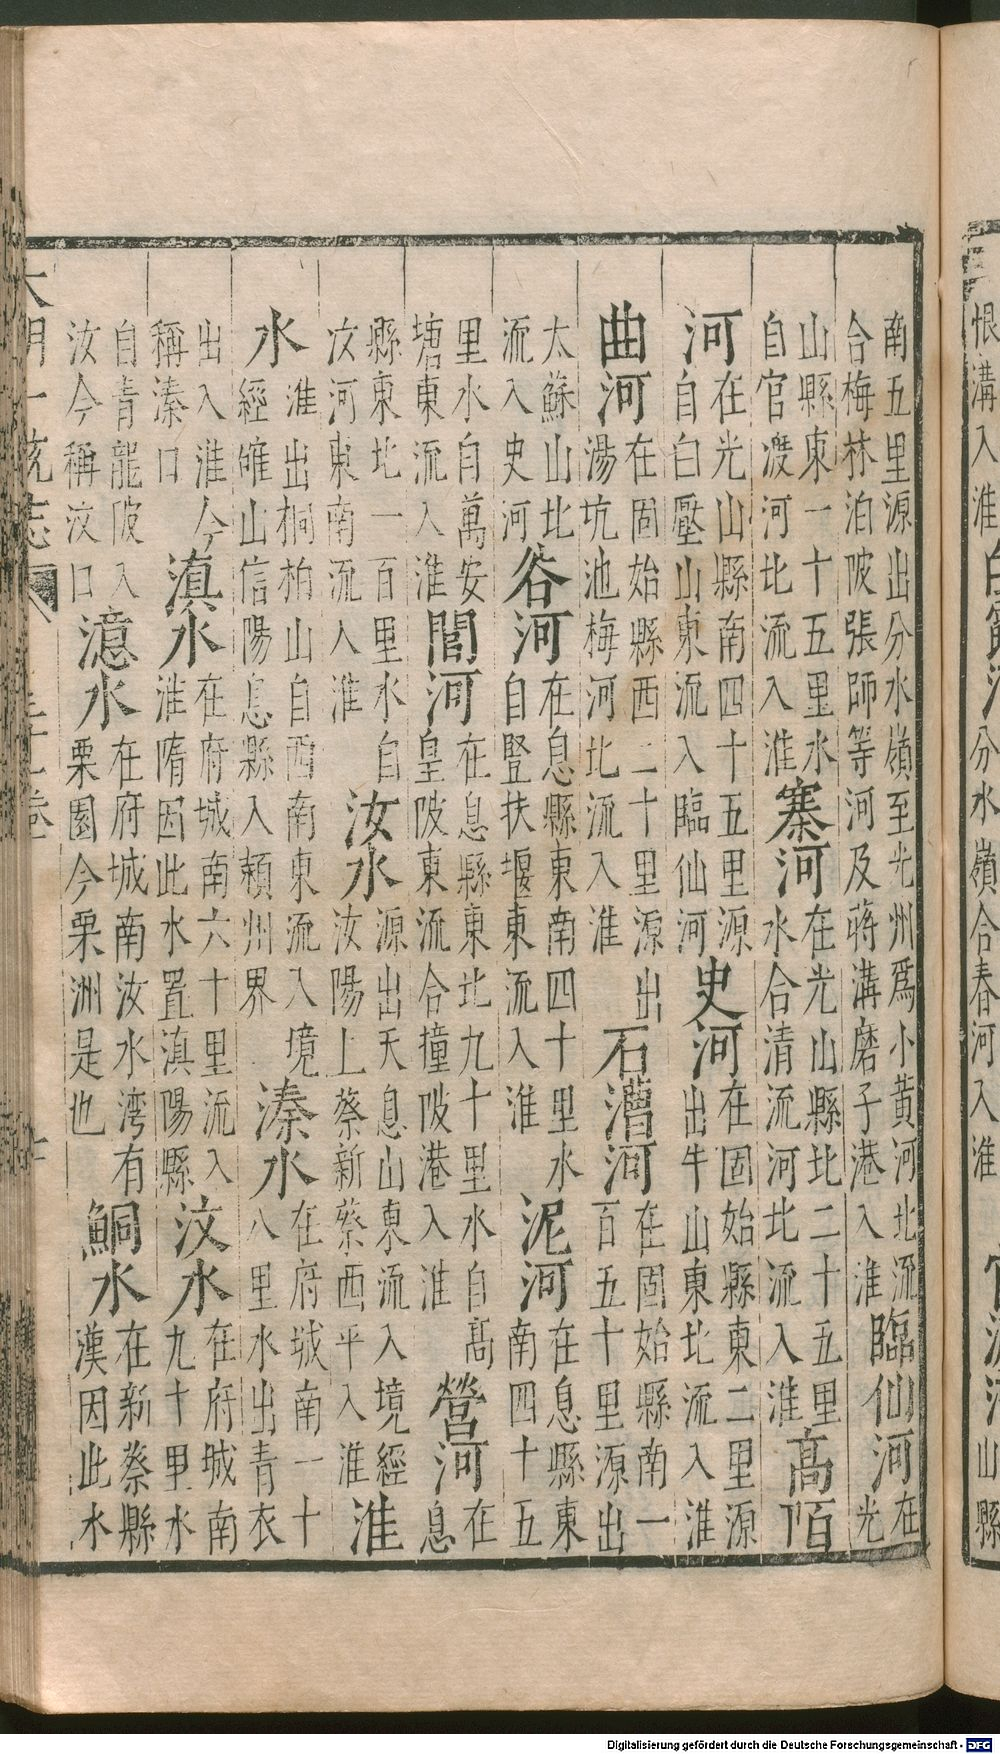 恨溝入淮
分水嶺合春河入淮
山縣
南五里源出分水嶺至光州爲小黃河北流合梅林泊陂張師等河及蔣溝磨子港入淮臨仙河在光
山縣東一十五里水自官渡河北流入淮寨河在光山縣北二十五里水合清流河北流入淮高陌
河在光山縣南四十五里源自白壓山東流入臨仙河史河在固始縣東二里源出牛山東北流入淮
曲河在固始縣西二十里源出湯坑池梅河北流入淮石漕河在固始縣南一百五十里源出
太蘇山北流入史河谷河在息縣東南四十里水自豎扶堰東流入淮泥河在息縣東南四十五
里水自萬安塘東流入淮閭河在息縣東北九十里水自高皇陂東流合撞陂港入淮營河在息
縣東北一百里水自汝河東南流入淮汝水源出天息山東流入境經汝陽上蔡新蔡西平入淮淮
水淮出桐柏山自西南東流入境經確山信陽息縣入潁州界溱水在府城南一十八里水出青衣
出入淮今稱溱口滇水在府城南六十里流入淮隋因此水置滇陽縣汶水在府城南九十里水
自青龍陂入汝今稱汶口澺水在府城南汝水湾有栗園今栗洲是也鮦水在新蔡縣漢因此水
大明一統志
Digitalisierung gefördert durch die Deutsche Forschungsgemeinschaft - DFG